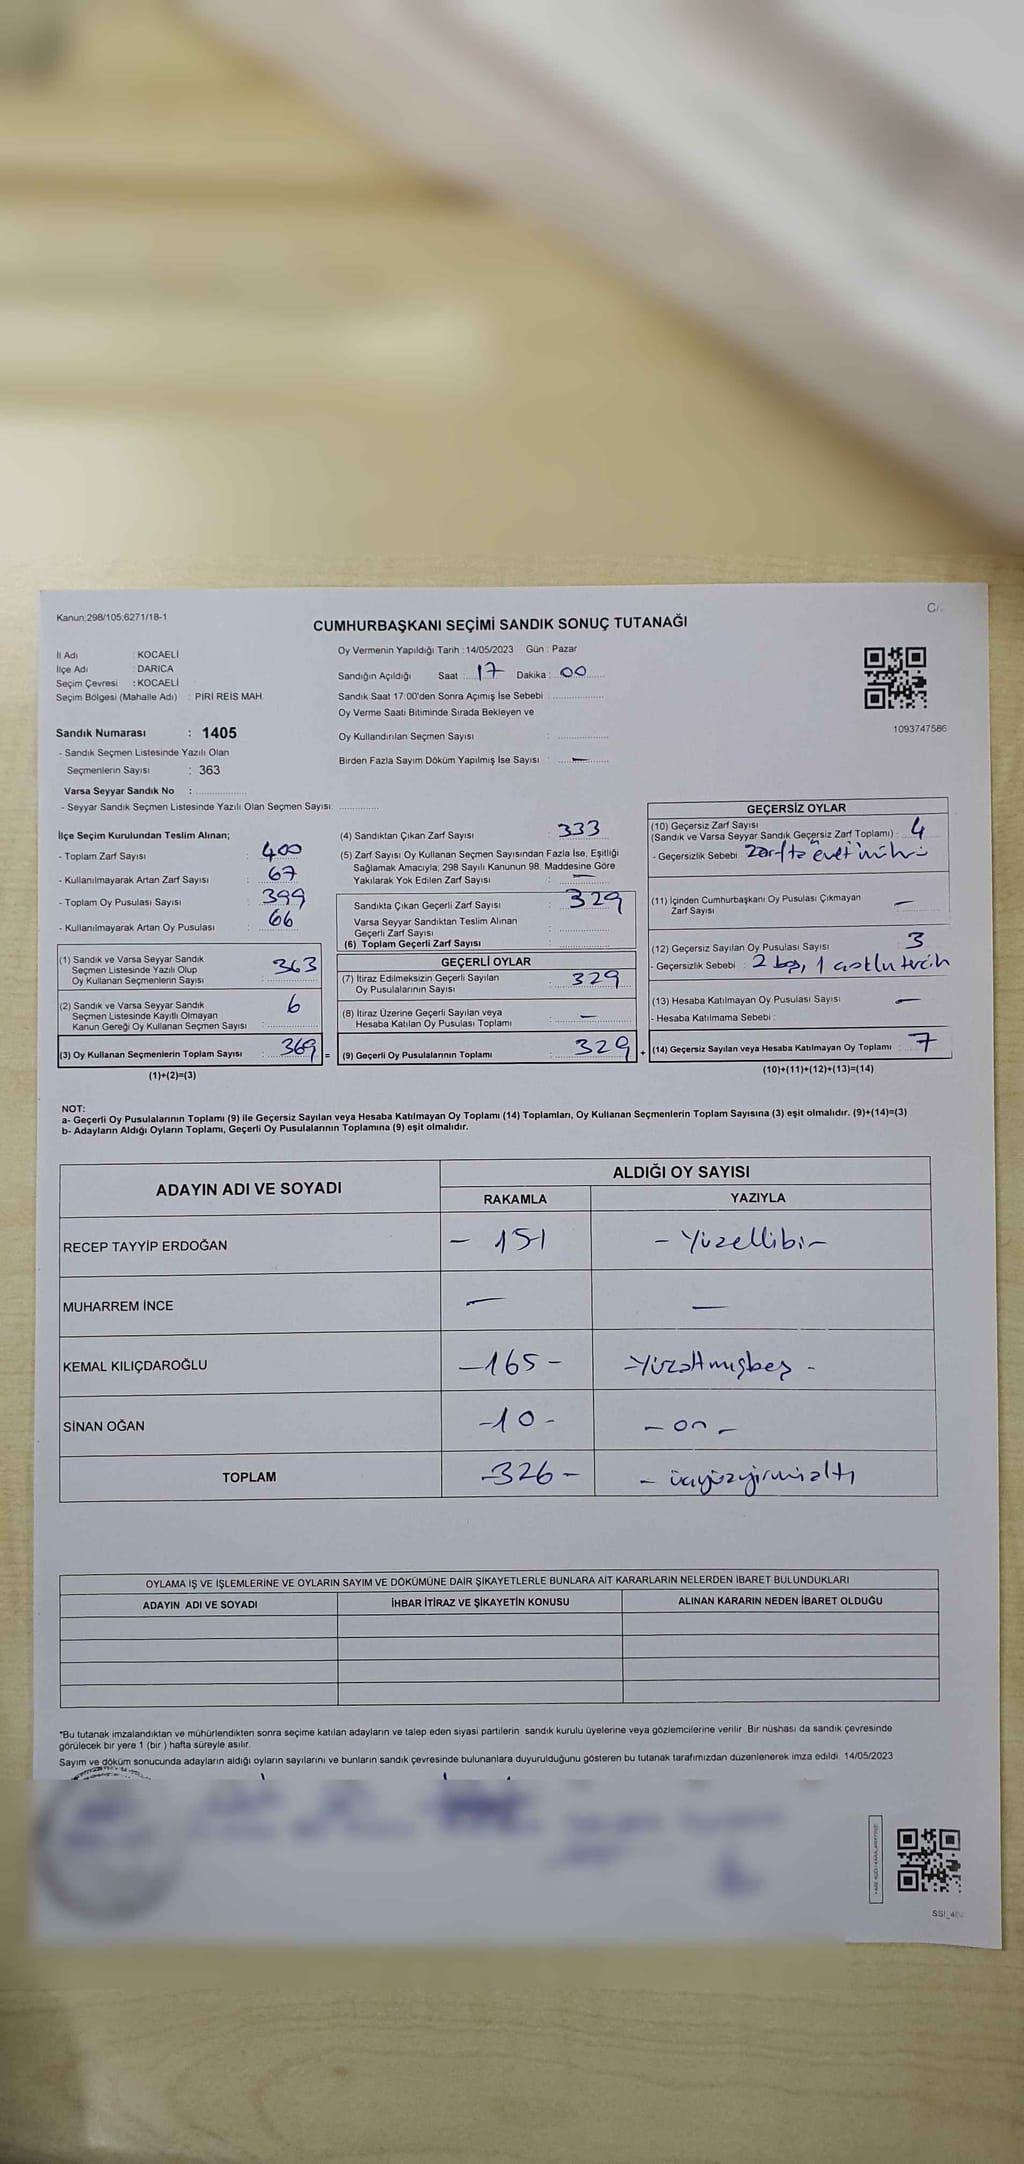 Kanun;298/105;6271/18-1
C/.
CUMHURBAŞKANI SEÇİMİ SANDIK SONUÇ TUTANAĞI
İl Adı : KOCAELİ
İlçe Adı : DARICA
Seçim Çevresi : KOCAELİ
Seçim Bölgesi (Mahalle Adı) : PİRİ REİS MAH.
Oy Vermenin Yapıldığı Tarih : 14/05/2023 Gün : Pazar
Sandığın Açıldığı Saat : 17 Dakika : 00
Sandık Saat 17:00'den Sonra Açımış İse Sebebi :
Oy Verme Saati Bitiminde Sırada Bekleyen ve
Oy Kullandırılan Seçmen Sayısı :
Birden Fazla Sayım Döküm Yapılmış İse Sayısı : —
1093747586
Sandık Numarası : 1405
- Sandık Seçmen Listesinde Yazılı Olan
Seçmenlerin Sayısı : 363
Varsa Seyyar Sandık No :
- Seyyar Sandık Seçmen Listesinde Yazılı Olan Seçmen Sayısı:
İlçe Seçim Kurulundan Teslim Alınan;
- Toplam Zarf Sayısı : 400
- Kullanılmayarak Artan Zarf Sayısı : 67
- Toplam Oy Pusulası Sayısı : 399
- Kullanılmayarak Artan Oy Pusulası : 66
(1) Sandık ve Varsa Seyyar Sandık
Seçmen Listesinde Yazılı Olup
Oy Kullanan Seçmenlerin Sayısı : 363
(2) Sandık ve Varsa Seyyar Sandık
Seçmen Listesinde Kayıtlı Olmayan
Kanun Gereği Oy Kullanan Seçmen Sayısı : 6
(3) Oy Kullanan Seçmenlerin Toplam Sayısı : 369 =
(1)+(2)=(3)
(4) Sandıktan Çıkan Zarf Sayısı : 333
(5) Zarf Sayısı Oy Kullanan Seçmen Sayısından Fazla İse, Eşitliği
Sağlamak Amacıyla, 298 Sayılı Kanunun 98. Maddesine Göre
Yakılarak Yok Edilen Zarf Sayısı : —
Sandıkta Çıkan Geçerli Zarf Sayısı : 329
Varsa Seyyar Sandıktan Teslim Alınan
Geçerli Zarf Sayısı :
(6) Toplam Geçerli Zarf Sayısı :
GEÇERLİ OYLAR
(7) İtiraz Edilmeksizin Geçerli Sayılan
Oy Pusulalarının Sayısı : 329
(8) İtiraz Üzerine Geçerli Sayılan veya
Hesaba Katılan Oy Pusulası Toplamı : —
(9) Geçerli Oy Pusulalarının Toplamı : 329 +
GEÇERSİZ OYLAR
(10) Geçersiz Zarf Sayısı
(Sandık ve Varsa Seyyar Sandık Geçersiz Zarf Toplamı) : 4
- Geçersizlik Sebebi : Zarfta evet mührü
(11) İçinden Cumhurbaşkanı Oy Pusulası Çıkmayan
Zarf Sayısı : —
(12) Geçersiz Sayılan Oy Pusulası Sayısı : 3
- Geçersizlik Sebebi : 2 boş, 1 tercih
(13) Hesaba Katılmayan Oy Pusulası Sayısı : —
- Hesaba Katılmama Sebebi :
(14) Geçersiz Sayılan veya Hesaba Katılmayan Oy Toplamı : 7
(10)+(11)+(12)+(13)=(14)
NOT:
a- Geçerli Oy Pusulalarının Toplamı (9) ile Geçersiz Sayılan veya Hesaba Katılmayan Oy Toplamı (14) Toplamları, Oy Kullanan Seçmenlerin Toplam Sayısına (3) eşit olmalıdır. (9)+(14)=(3)
b- Adayların Aldığı Oyların Toplamı, Geçerli Oy Pusulalarının Toplamına (9) eşit olmalıdır.
ADAYIN ADI VE SOYADI
ALDIĞI OY SAYISI
RAKAMLA YAZIYLA
RECEP TAYYİP ERDOĞAN - 151 - Yüzellibir
MUHARREM İNCE — —
KEMAL KILIÇDAROĞLU -165- -Yüzaltmışbeş -
SİNAN OĞAN -10- - on -
TOPLAM -326- - üçyüzyirmialtı
OYLAMA İŞ VE İŞLEMLERİNE VE OYLARIN SAYIM VE DÖKÜMÜNE DAİR ŞİKAYETLERLE BUNLARA AİT KARARLARIN NELERDEN İBARET BULUNDUKLARI
ADAYIN ADI VE SOYADI İHBAR İTİRAZ VE ŞİKAYETİN KONUSU ALINAN KARARIN NEDEN İBARET OLDUĞU
*Bu tutanak imzalandıktan ve mühürlendikten sonra seçime katılan adayların ve talep eden siyasi partilerin sandık kurulu üyelerine veya gözlemcilerine verilir. Bir nüshası da sandık çevresinde
görülecek bir yere 1 (bir ) hafta süreyle asılır.
Sayım ve döküm sonucunda adayların aldığı oyların sayılarını ve bunların sandık çevresinde bulunanlara duyurulduğunu gösteren bu tutanak tarafımızdan düzenlenerek imza edildi. 14/05/2023